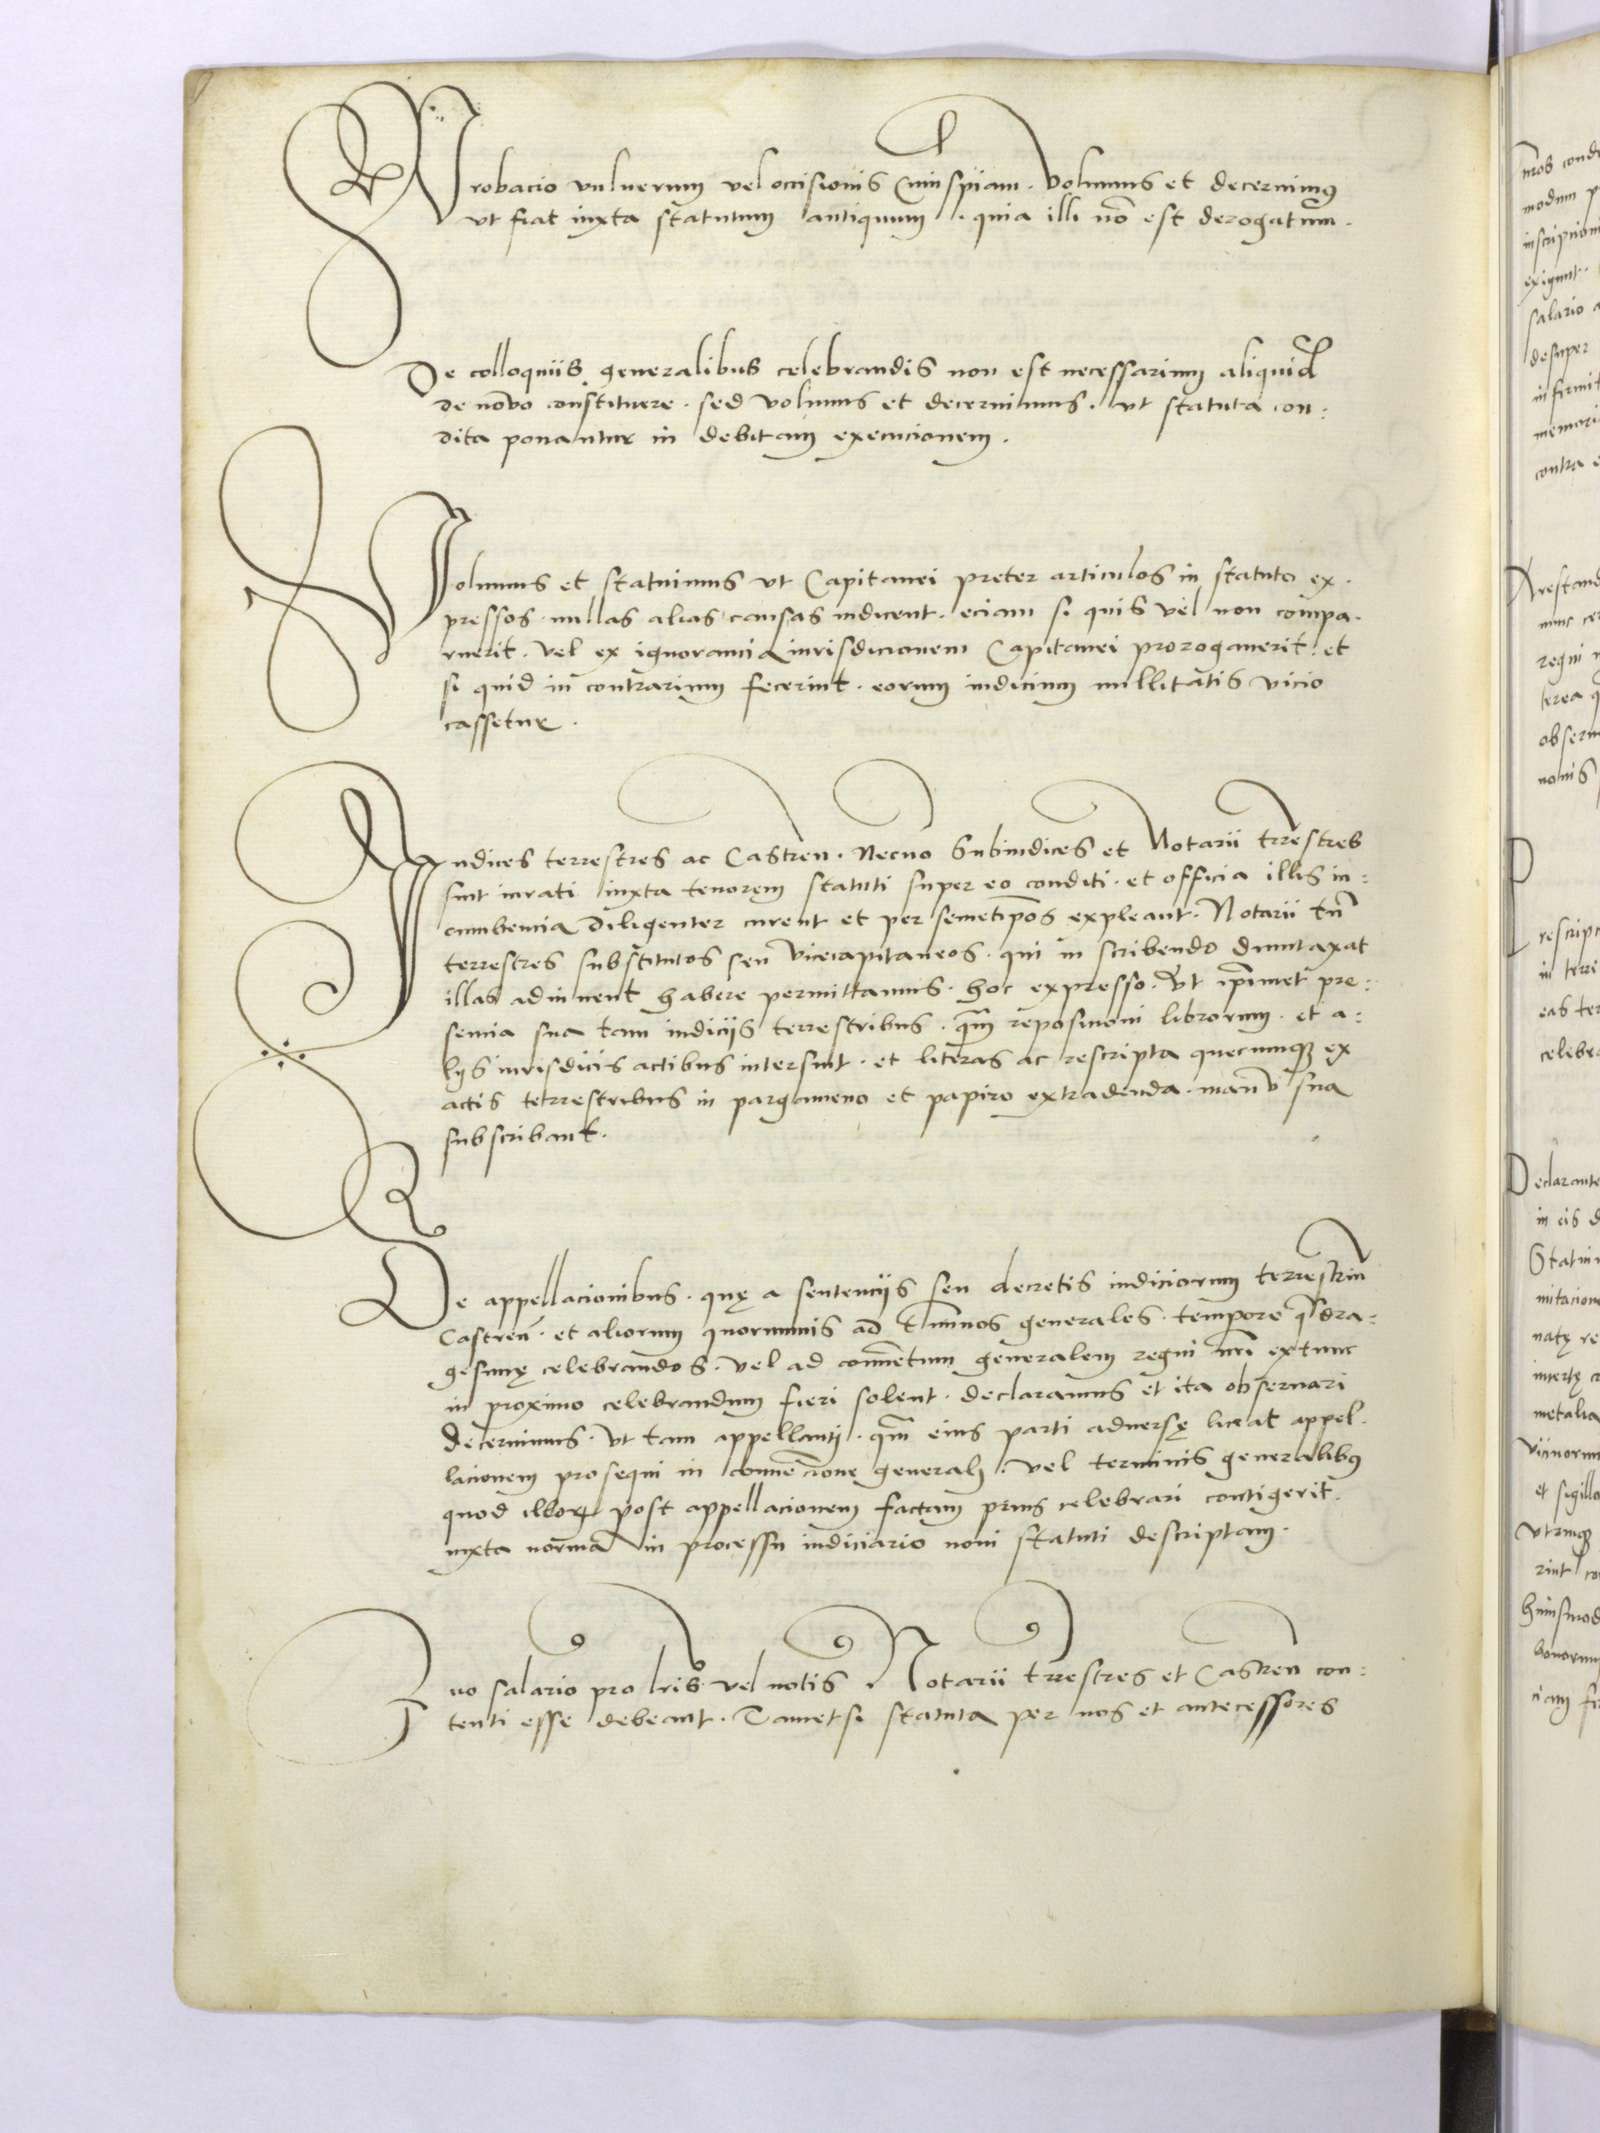 Probacio vulnerum vel occisionis Cuiuspiam . volumus et decernimus
vt fiat iuxta statutum antiquum . quia illi nō est derogatum .
De colloquiis generalibus celebrandis non est necessarium aliquid
de novo constituere . sed volumus et decernimus . vt statuta con:
dita ponantur in debitam execucionem .
Volumus et statuimus vt Capitanei preter articulos in statuto ex.
pressos . nullas alias causas iudicent . eciam si quis vel non compa.
ruerit . vel ex ignorancia iurisdicionem Capitanei prorogauerit . et
si quid in contrarium fecerint . eorum iudicium nullitatis vicio
cassetur .
Iudices terrestres ac Castren . Necnō Subiudices et Notarii trrestres
sint iurati iuxta tenorem statuti super eo conditi . et officia illis in:
cumbencia diligenter curent et per semetip̄os expleant . Notarii tn̄
terrestres substitutos seu vicecapitaneos . qui in scribendo dumtaxat
illas adiuuent habere permittamus . hoc expresso . vt ip̄imet pre:
sencia sua tam iudiciis terrestribus . qm̄ reposicioni librorum . et a:
liis iurisdicis actibus intersint . et literas ac rescripta quecumqꝫ ex
actis terrestribus in pargameno et papiro extradenda . manu sua
subscribant .
De appellacionibus . quę a sentenciis seu decretis iudiciorum terrestrium
Castren̄ . et aliorum quorumuis ad tm̄inos generales . tempore qdra:
gesimę celebrandos . vel ad conuentum generalem regni nr̄i extunc
in proximo celebrandum fieri solent . declaramus et ita obseruari
decernimus . vt tam appellanti . qm̄ eius parti aduersę liceat appel.
lacionem prosequi in conuēcione generali . vel terminis generalibus
quod illorꝝ post appellacionem factam prius celebrari contigerit .
iuxta normā in processu iudiciario noui statuti descriptam .
Quo salario pro lr̄is vel notis . Notarii trrestres et Castren con:
tenti esse debeant . Tametsi statuta per nos et antecessores